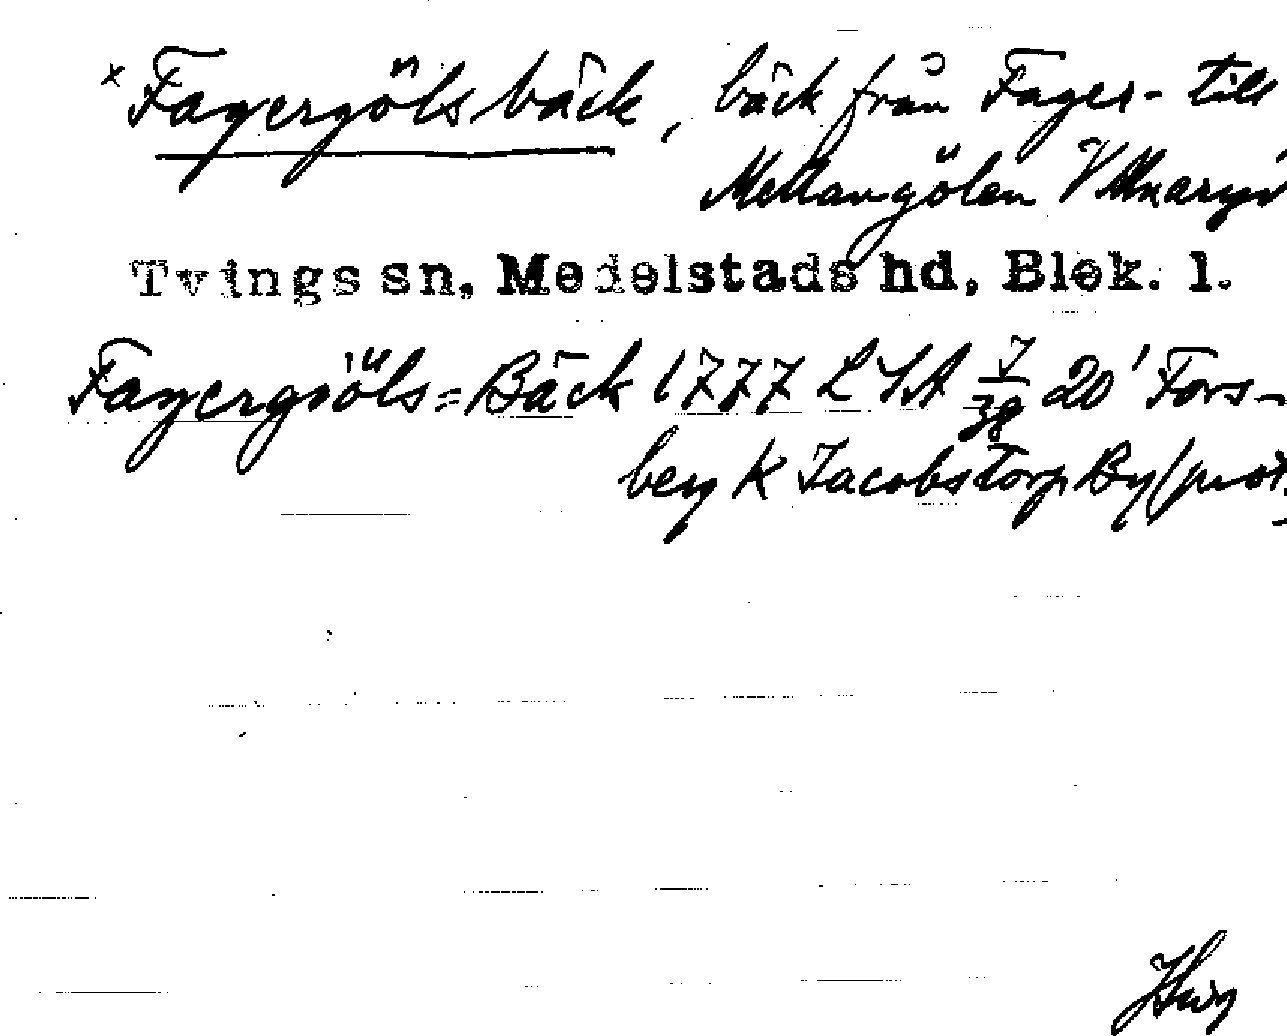 × Fagergölsbäck, bäck från Fager- till
Mellangölen V
Tvings sn, Medelstads hd, Blek. l.
Fagergiöls=Bäck 1777 LSA 7/38 20' Fors-
berg K Jacobstorp By (